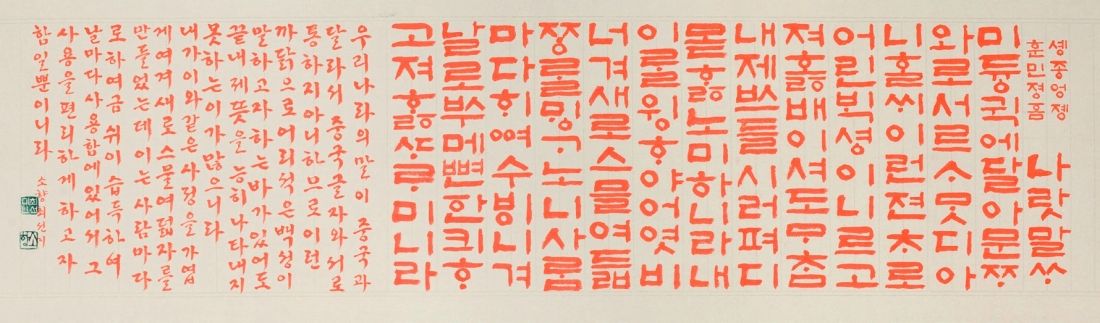 솅종엉졩
훈민졍흠
나랏말ᄊᆞ
미듕귁에달아문ᄍᆞ
와로서르ᄉᆞᄆᆞᆺ디아
니ᄒᆞᆯᄊᆡ이런젼ᄎᆞ로
어린ᄇᆡᆨ셩이니르고
져ᄒᆞᇙ배이셔도ᄆᆞᄎᆞᆷ
내제ᄠᅳ들시러펴디
몯ᄒᆞᇙ노미하니라내
이ᄅᆞᆯ윙ᄒᆞ야어엿비
너겨새로스믈여듧
ᄍᆞᆼᄅᆞᆯᄆᆡᇰᄀᆞ노니사ᄅᆞᆷ
마다ᄒᆡᅇᅧ수ᄫᅵ니겨
날로ᄡᅮ메뼌한킈ᄒᆞ
고져ᄒᆞᇙᄯᆞᄅᆞ미니라
우리나라의말이 중국과
달라서중국글자와서로
통하지아니하므로이런
까닭으로어리석은백성이
말하고자하는바가있어도
끝내제뜻을능히나타내지
못하는이가많으니라
내가이와같은사정을가엽
게여겨새로스물여덟자를
만들었는데이는사람마다
로하여금쉬이습득하여
날마다사용함에있어서그
사용을편리하게하고자
함일뿐이니라
소향